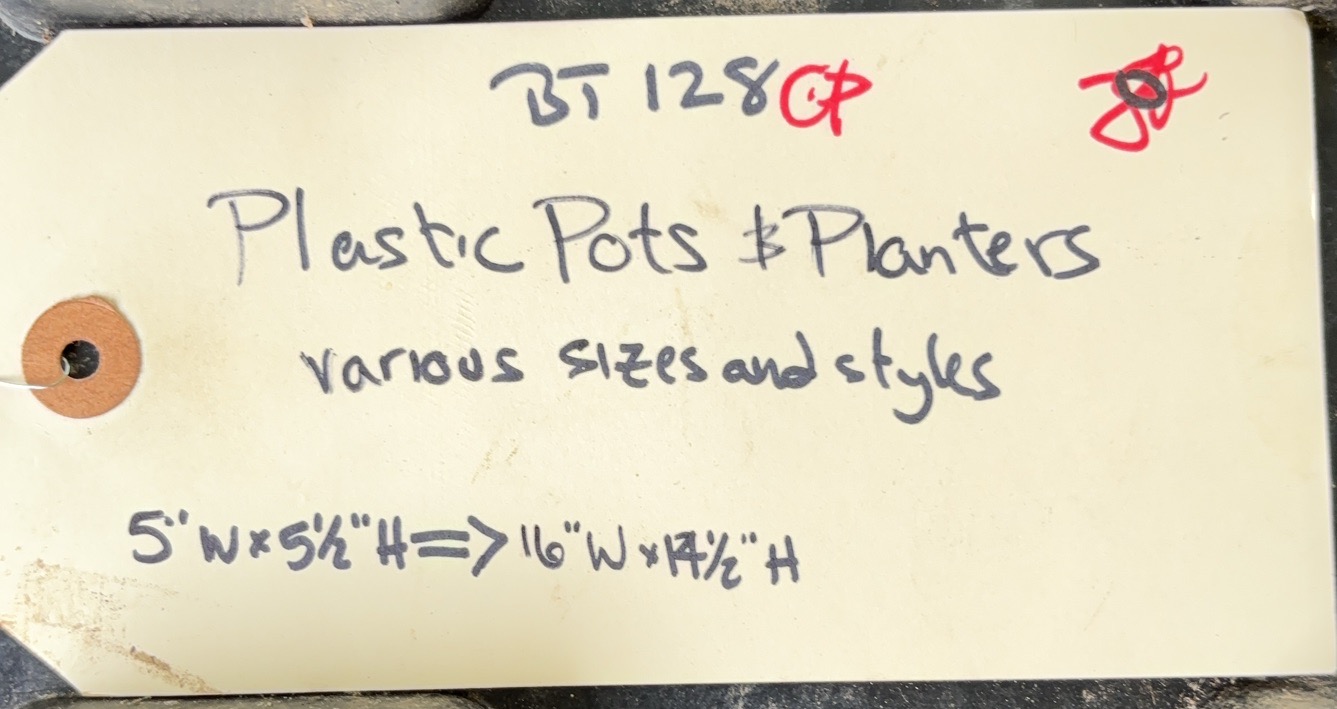 BT 128 CP
Plastic Pots & Planters
various sizes and styles
5" W x 5½" H => 16" W x 14½" H